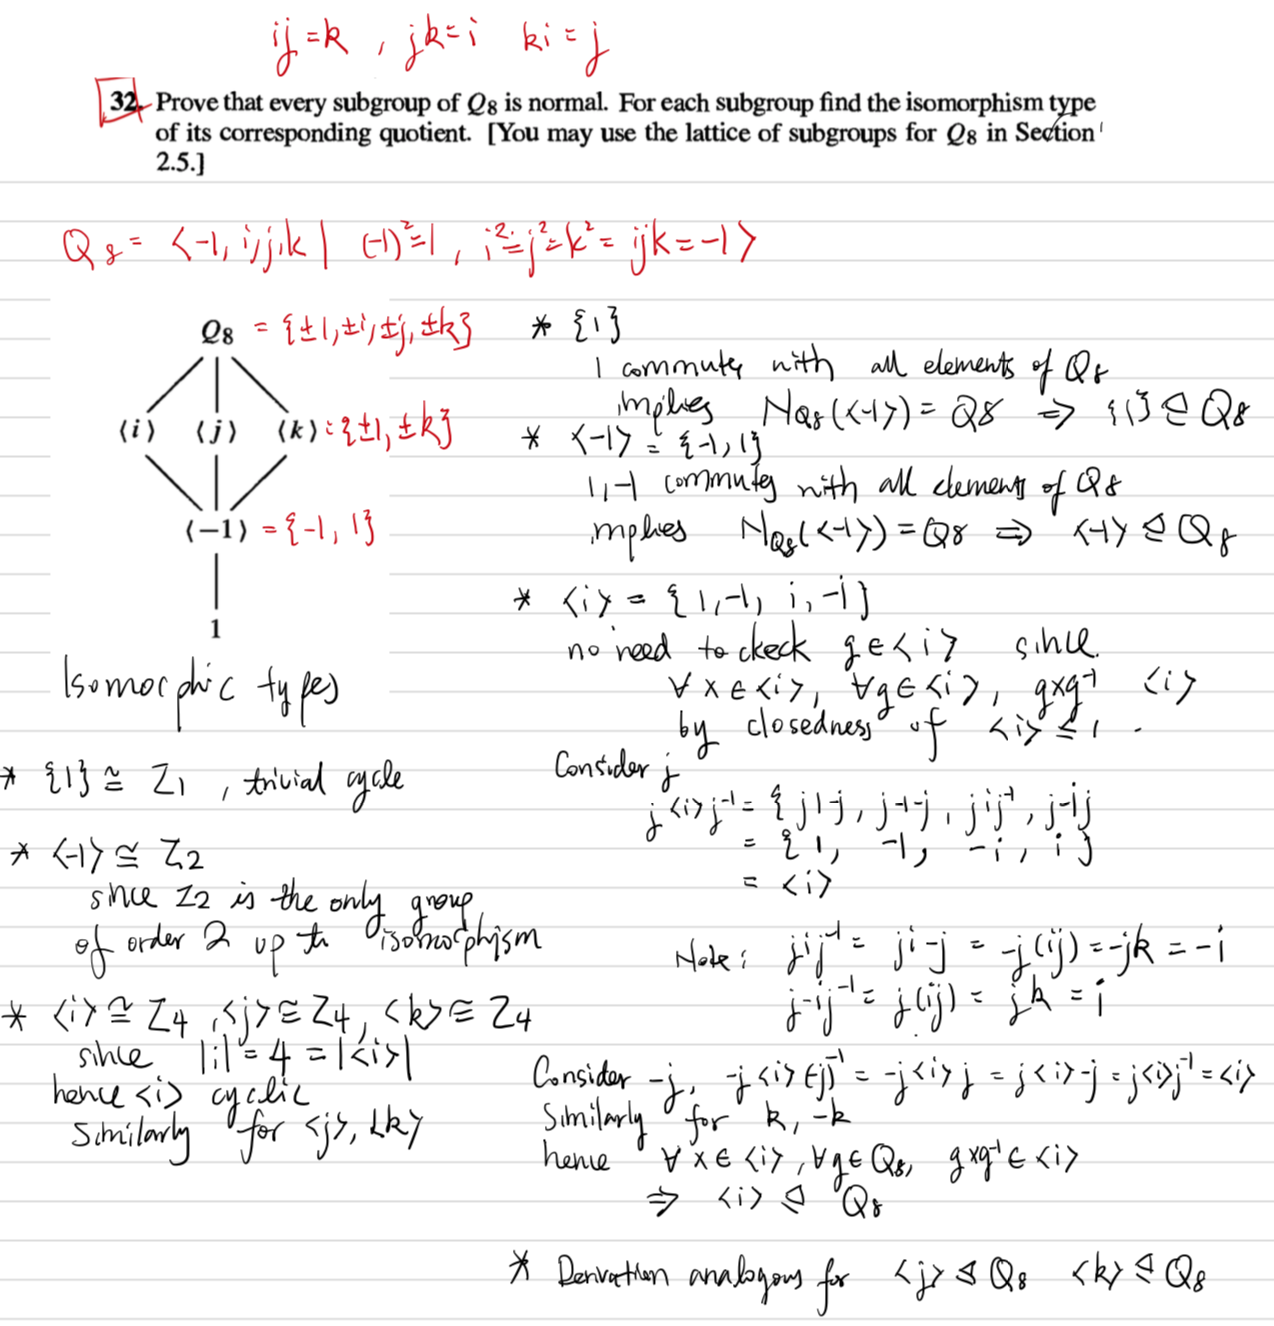 ij = k , jk = i ki = j
32. Prove that every subgroup of Q8 is normal. For each subgroup find the isomorphism type
of its corresponding quotient. [You may use the lattice of subgroups for Q8 in Section
2.5.]
Q8 = <-1, i, j, k | (-1)²=1 , i²=j²=k²= ijk=-1>
Q8 = {±1, ±i, ±j, ±k}
⟨i⟩ ⟨j⟩ ⟨k⟩ = {±1, ±k}
⟨−1⟩ = {-1, 1}
1
Isomorphic types
* {1} ≅ Z1 , trivial cycle
* <-1> ≅ Z2
since Z2 is the only group
of order 2 up to isomorphism
* <i> ≅ Z4 , <j> ≅ Z4, <k> ≅ Z4
since |i| = 4 = |<i>|
hence <i> cyclic
Similarly for <j>, <k>
* {1}
1 commutes with all elements of Q8
implies NQ8(<-1>) = Q8 ⇒ {1} ⊴ Q8
* <-1> = {-1, 1}
1,-1 commutes with all elements of Q8
implies NQ8(<-1>) = Q8 ⇒ <-1> ⊴ Q8
* <i> = {1,-1, i, -i}
no need to ckeck g∈<i> since.
∀ x ∈ <i>, ∀g∈<i>, gxg⁻¹ <i>
by closedness of <i> ≤ .
Consider j
j<i>j⁻¹ = { j1-j, j-1-j, jij⁻¹, j-ij
= {1, -1, -i, i}
= <i>
Note: jij⁻¹ = ji-j = -j(ij) = -jk = -i
j-ij⁻¹ = j(ij) = jk = i
Consider -j, -j<i>(-j)⁻¹ = -j<i>j = j<i>-j = j<i>j⁻¹ = <i>
Similarly for k, -k
hence ∀ x∈ <i>, ∀g∈ Q8, gxg⁻¹∈ <i>
⇒ <i> ⊴ Q8
* Derivation analogous for <j> ⊴ Q8 <k> ⊴ Q8